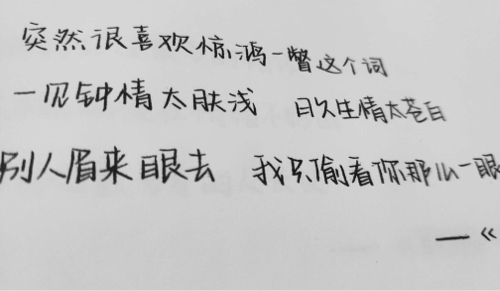 突然很喜欢惊鸿一瞥这个词
一见钟情太肤浅 日久生情太苍白
别人眉来眼去 我只偷看你那么一眼
—《